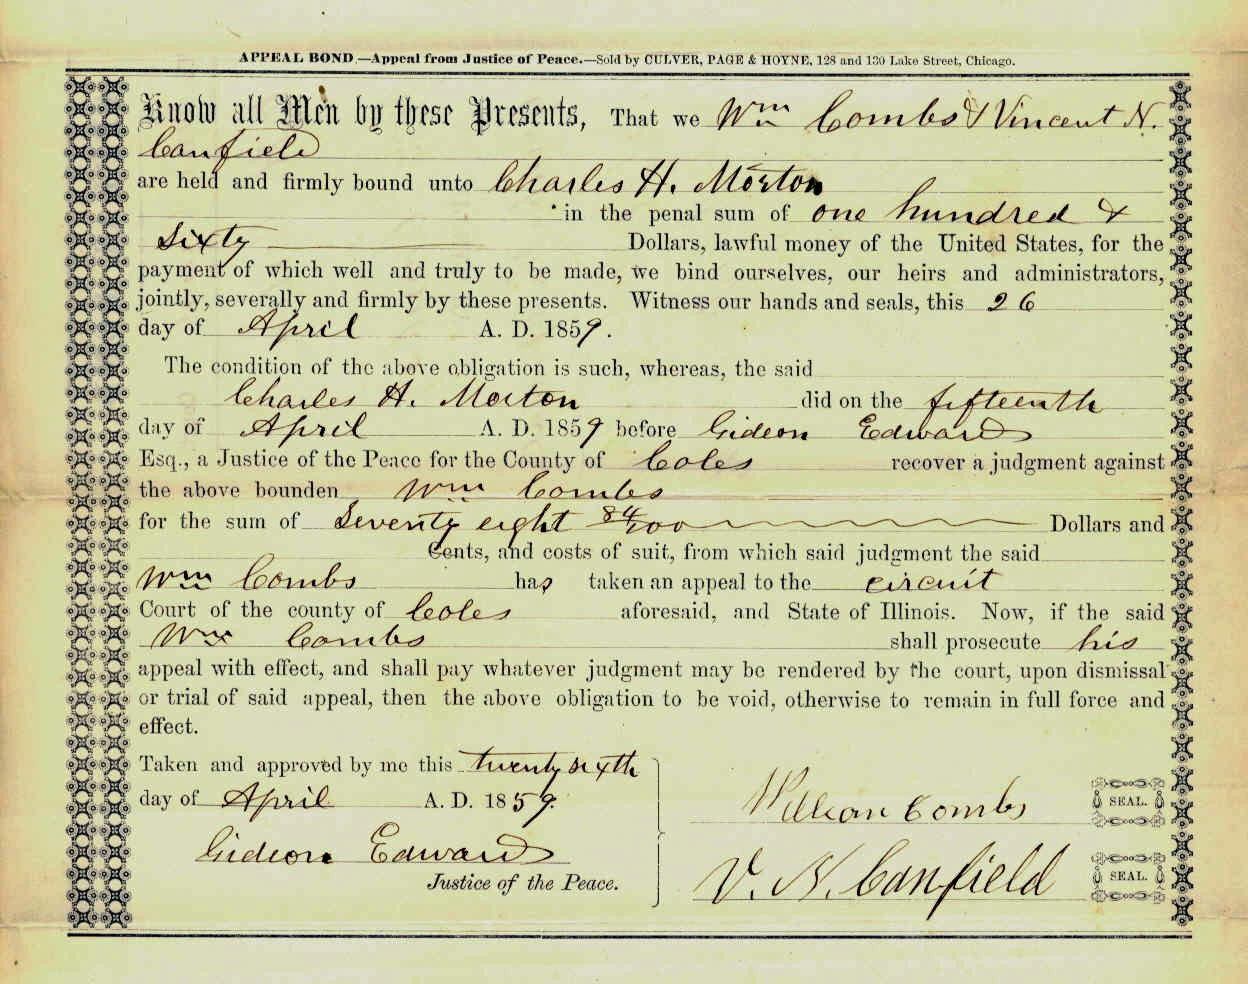 APPEAL BOND.—Appeal from Justice of Peace.—Sold by CULVER, PAGE & HOYNE, 128 and 130 Lake Street, Chicago.
Know all Men by these Presents, That we Wm Combs & Vincent N.
Canfield
are held and firmly bound unto Charles H. Morton
in the penal sum of one hundred &
sixty Dollars, lawful money of the United States, for the
payment of which well and truly to be made, we bind ourselves, our heirs and administrators,
jointly, severally and firmly by these presents. Witness our hands and seals, this 26
day of April A. D. 1859.
The condition of the above obligation is such, whereas, the said
Charles H. Morton did on the fifteenth
day of April A. D. 1859 before Gideon Edwards
Esq., a Justice of the Peace for the County of Coles recover a judgment against
the above bounden Wm Combs
for the sum of Seventy eight 84/100 Dollars and
Cents, and costs of suit, from which said judgment the said
Wm Combs has taken an appeal to the circuit
Court of the county of Coles aforesaid, and State of Illinois. Now, if the said
Wm Combs shall prosecute his
appeal with effect, and shall pay whatever judgment may be rendered by the court, upon dismissal
or trial of said appeal, then the above obligation to be void, otherwise to remain in full force and
effect.
Taken and approved by me this twenty sixth
day of April A. D. 1859.
Gideon Edwards
Justice of the Peace.
William Combs SEAL.
V. N. Canfield SEAL.